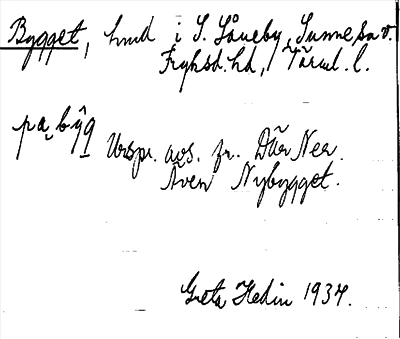 Bygget, hmd i S. Låneby, Sunne sn v.
Fryksd. hd, Värml. l.
pa, bŷg
Urspr. avs. fr. Där Ner.
Även Nybygget.
Greta Hedin 1934.